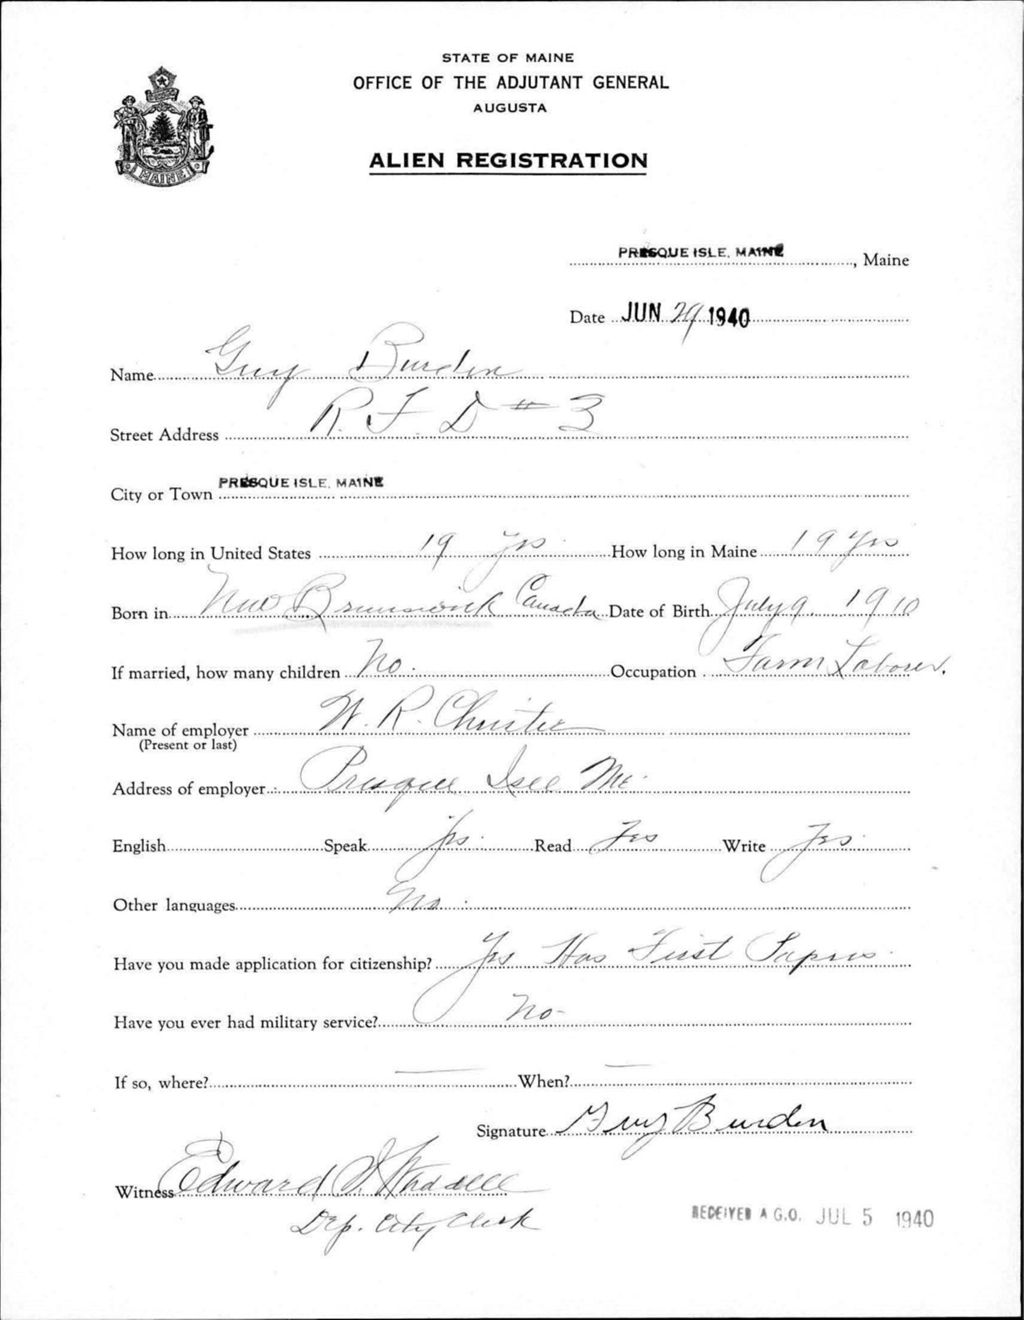 STATE OF MAINE
OFFICE OF THE ADJUTANT GENERAL
AUGUSTA
ALIEN REGISTRATION
MAINE
PRESQUE ISLE, MAINE, Maine
Date JUN 29 1940
Name Guy Burden
Street Address R. F. D # 3
City or Town PRESQUE ISLE, MAINE
How long in United States 19 yrs How long in Maine 19 yrs
Born in New Brunswick Canada Date of Birth July 9, 1910
If married, how many children No. Occupation Farm Laborer.
Name of employer W. R. Christie
(Present or last)
Address of employer Presque Isle Me.
English Speak Yes. Read Yes Write Yes.
Other languages No.
Have you made application for citizenship? Yes Has First Papers.
Have you ever had military service? No-
If so, where? — When? —
Signature Guy Burden
Witness Edward Waddell
Dep. City Clerk
RECEIVED A.G.O. JUL 5 1940